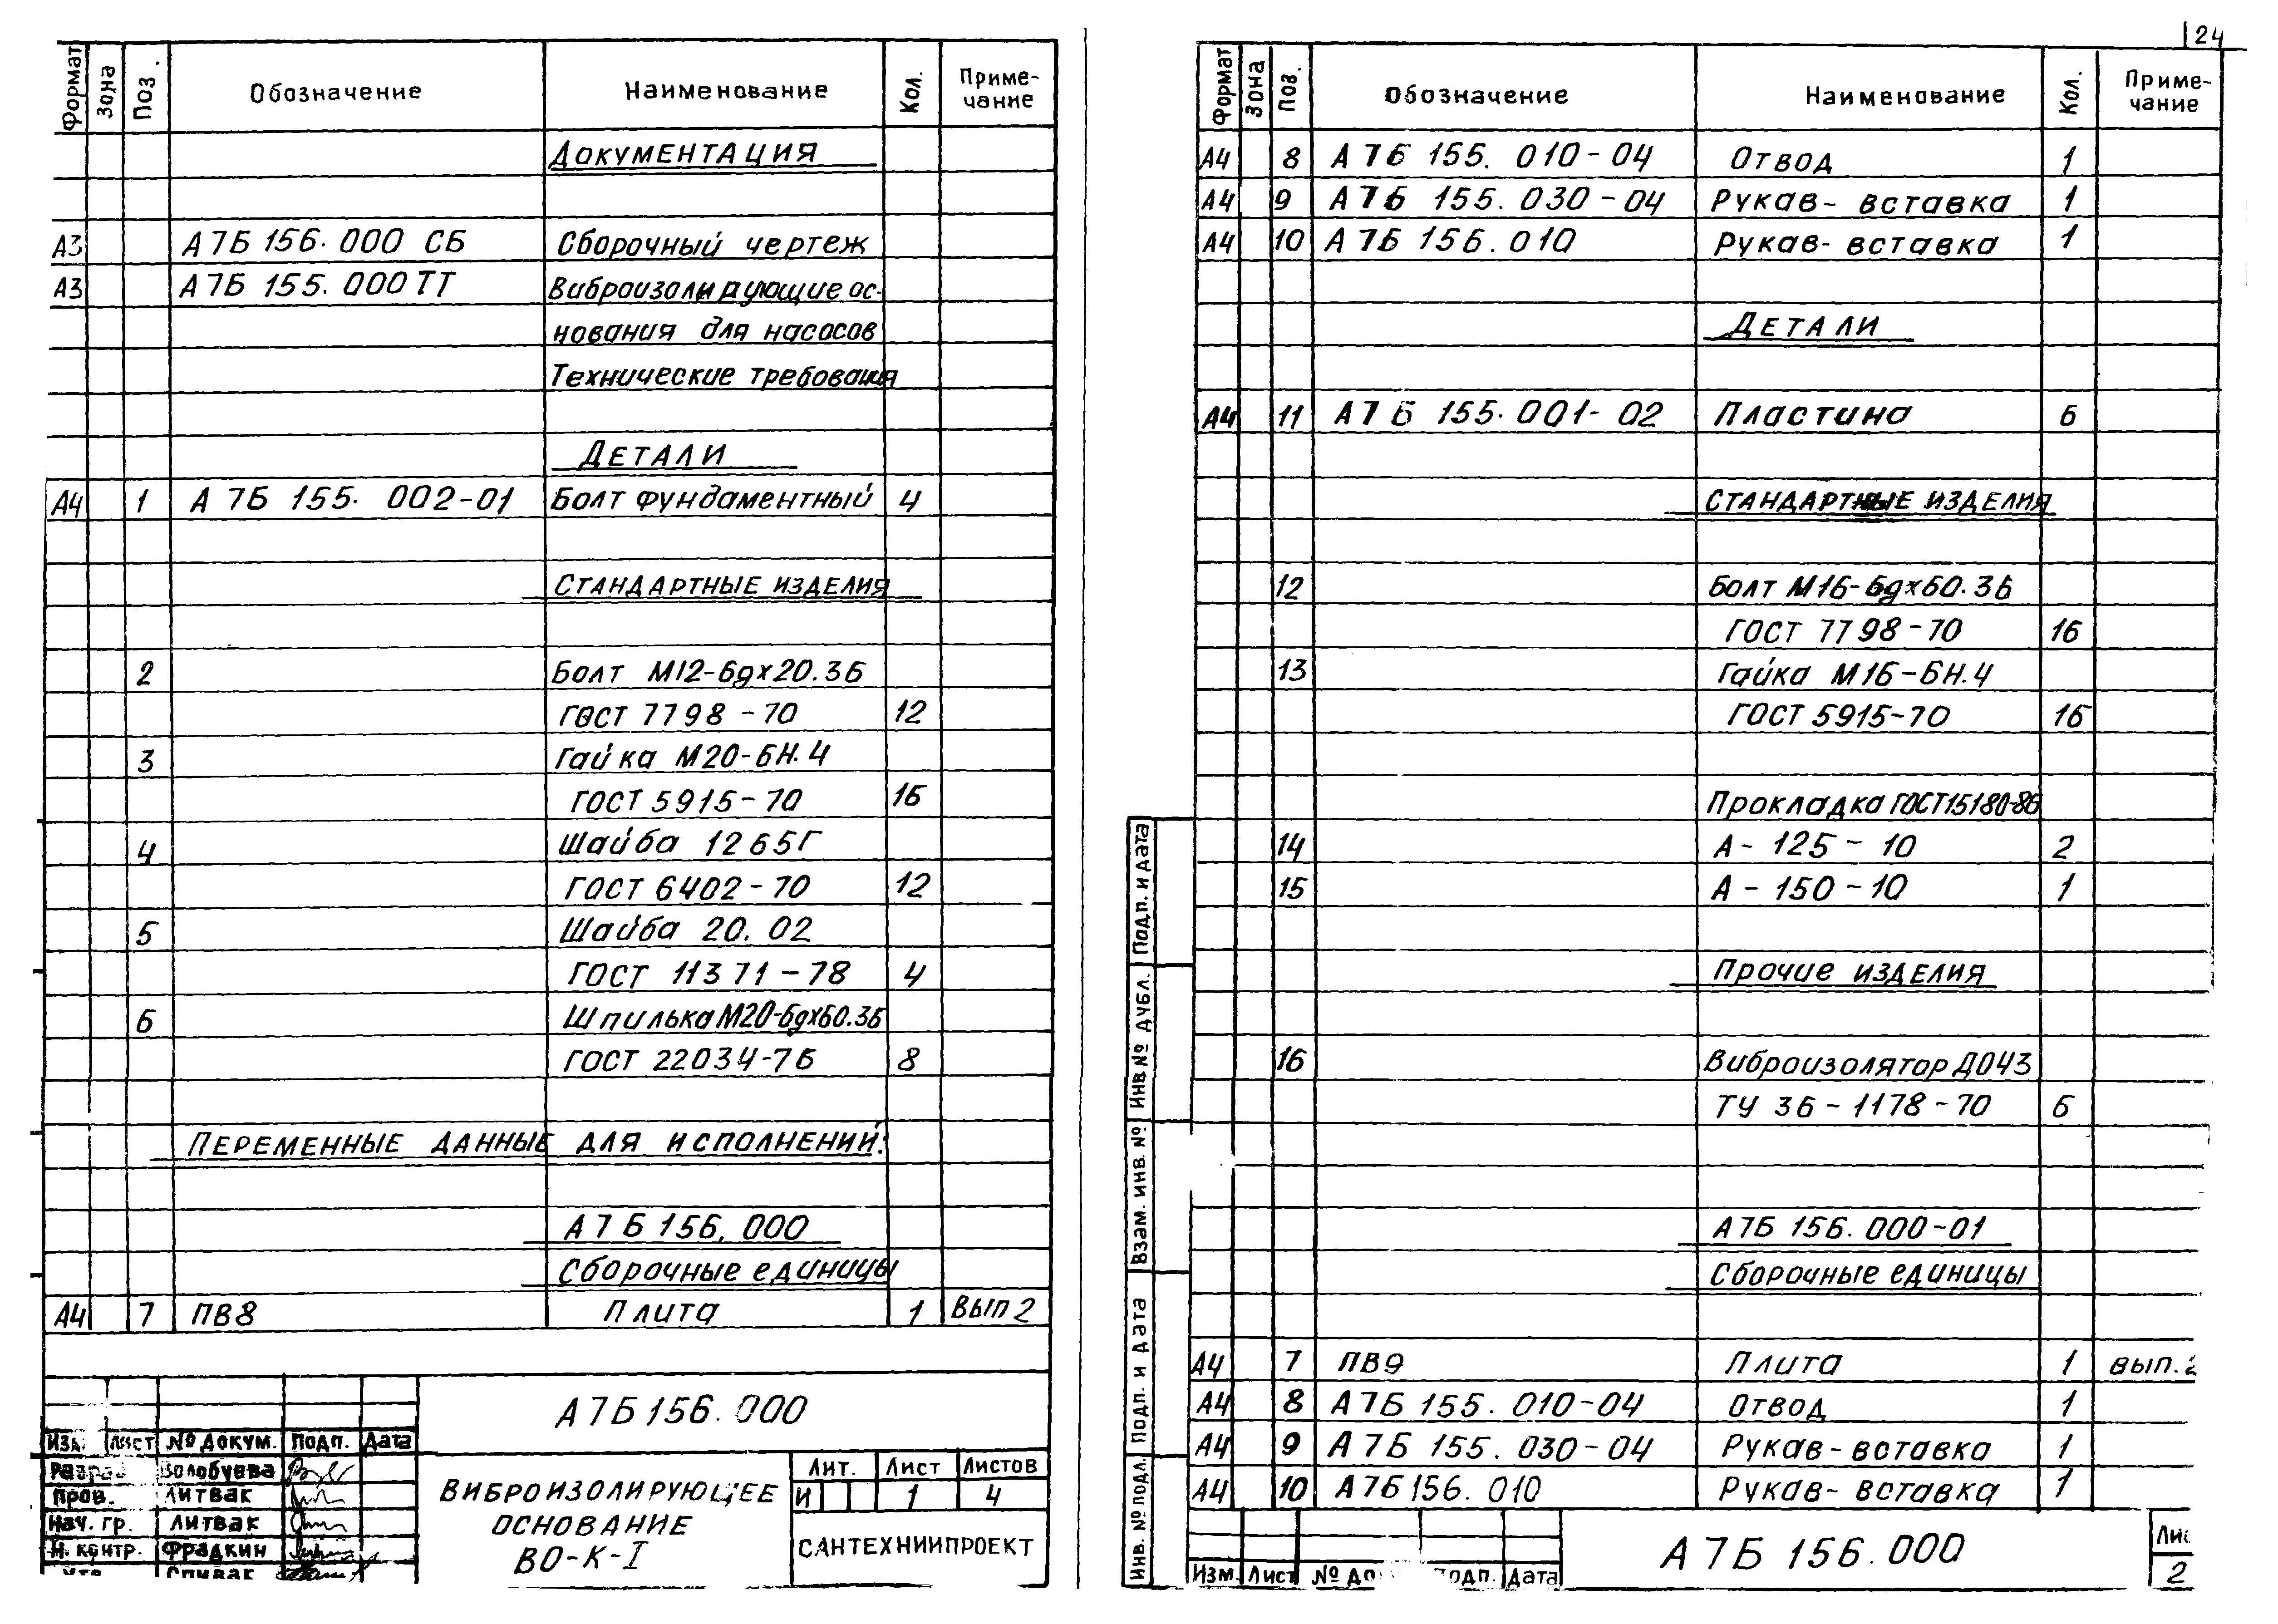 24
Формат Зона Поз. Обозначение Наименование Кол. Приме-
чание
Документация
А3 А7Б 156.000 СБ Сборочный чертеж
А3 А7Б 155.000 ТТ Виброизолирующие ос-
нования для насосов
Технические требования
Детали
А4 1 А7Б 155.002-01 Болт фундаментный 4
Стандартные изделия
2 Болт М12-6gx20.36
ГОСТ 7798-70 12
3 Гайка М20-6Н.4
ГОСТ 5915-70 16
4 Шайба 12 65Г
ГОСТ 6402-70 12
5 Шайба 20.02
ГОСТ 11371-78 4
6 Шпилька М20-6gx60.36
ГОСТ 22034-76 8
Переменные данные для исполнений:
А7Б 156.000
Сборочные единицы
А4 7 ПВ8 Плита 1 Вып 2
А7Б 156.000
Изм. Лист № докум. Подп. Дата
Разраб Волобуева
Пров. Литвак
Нач. гр. Литвак
Н. контр. Фрадкин
Утв. Спивак
Виброизолирующее
основание
ВО-К-I
Лит. Лист Листов
И 1 4
САНТЕХНИИПРОЕКТ
Формат Зона Поз. Обозначение Наименование Кол. Приме-
чание
А4 8 А7Б 155.010-04 Отвод 1
А4 9 А7Б 155.030-04 Рукав-вставка 1
А4 10 А7Б 156.010 Рукав-вставка 1
Детали
А4 11 А7Б 155.001-02 Пластина 6
Стандартные изделия
12 Болт М16-6gx60.36
ГОСТ 7798-70 16
13 Гайка М16-6Н.4
ГОСТ 5915-70 16
Прокладка ГОСТ15180-86
14 А-125-10 2
15 А-150-10 1
Прочие изделия
16 Виброизолятор ДО43
ТУ 36-1178-70 6
А7Б 156.000-01
Сборочные единицы
А4 7 ПВ9 Плита 1 вып.2
А4 8 А7Б 155.010-04 Отвод 1
А4 9 А7Б 155.030-04 Рукав-вставка 1
А4 10 А7Б 156.010 Рукав-вставка 1
Инв. № подл. Подп. и дата Взам. инв. № Инв № дубл. Подп. и дата
Изм. Лист № до Подп. Дата
А7Б 156.000
Лис
2